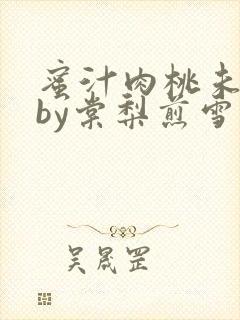 蜜汁肉桃未
by棠梨煎雪
吴晟罡